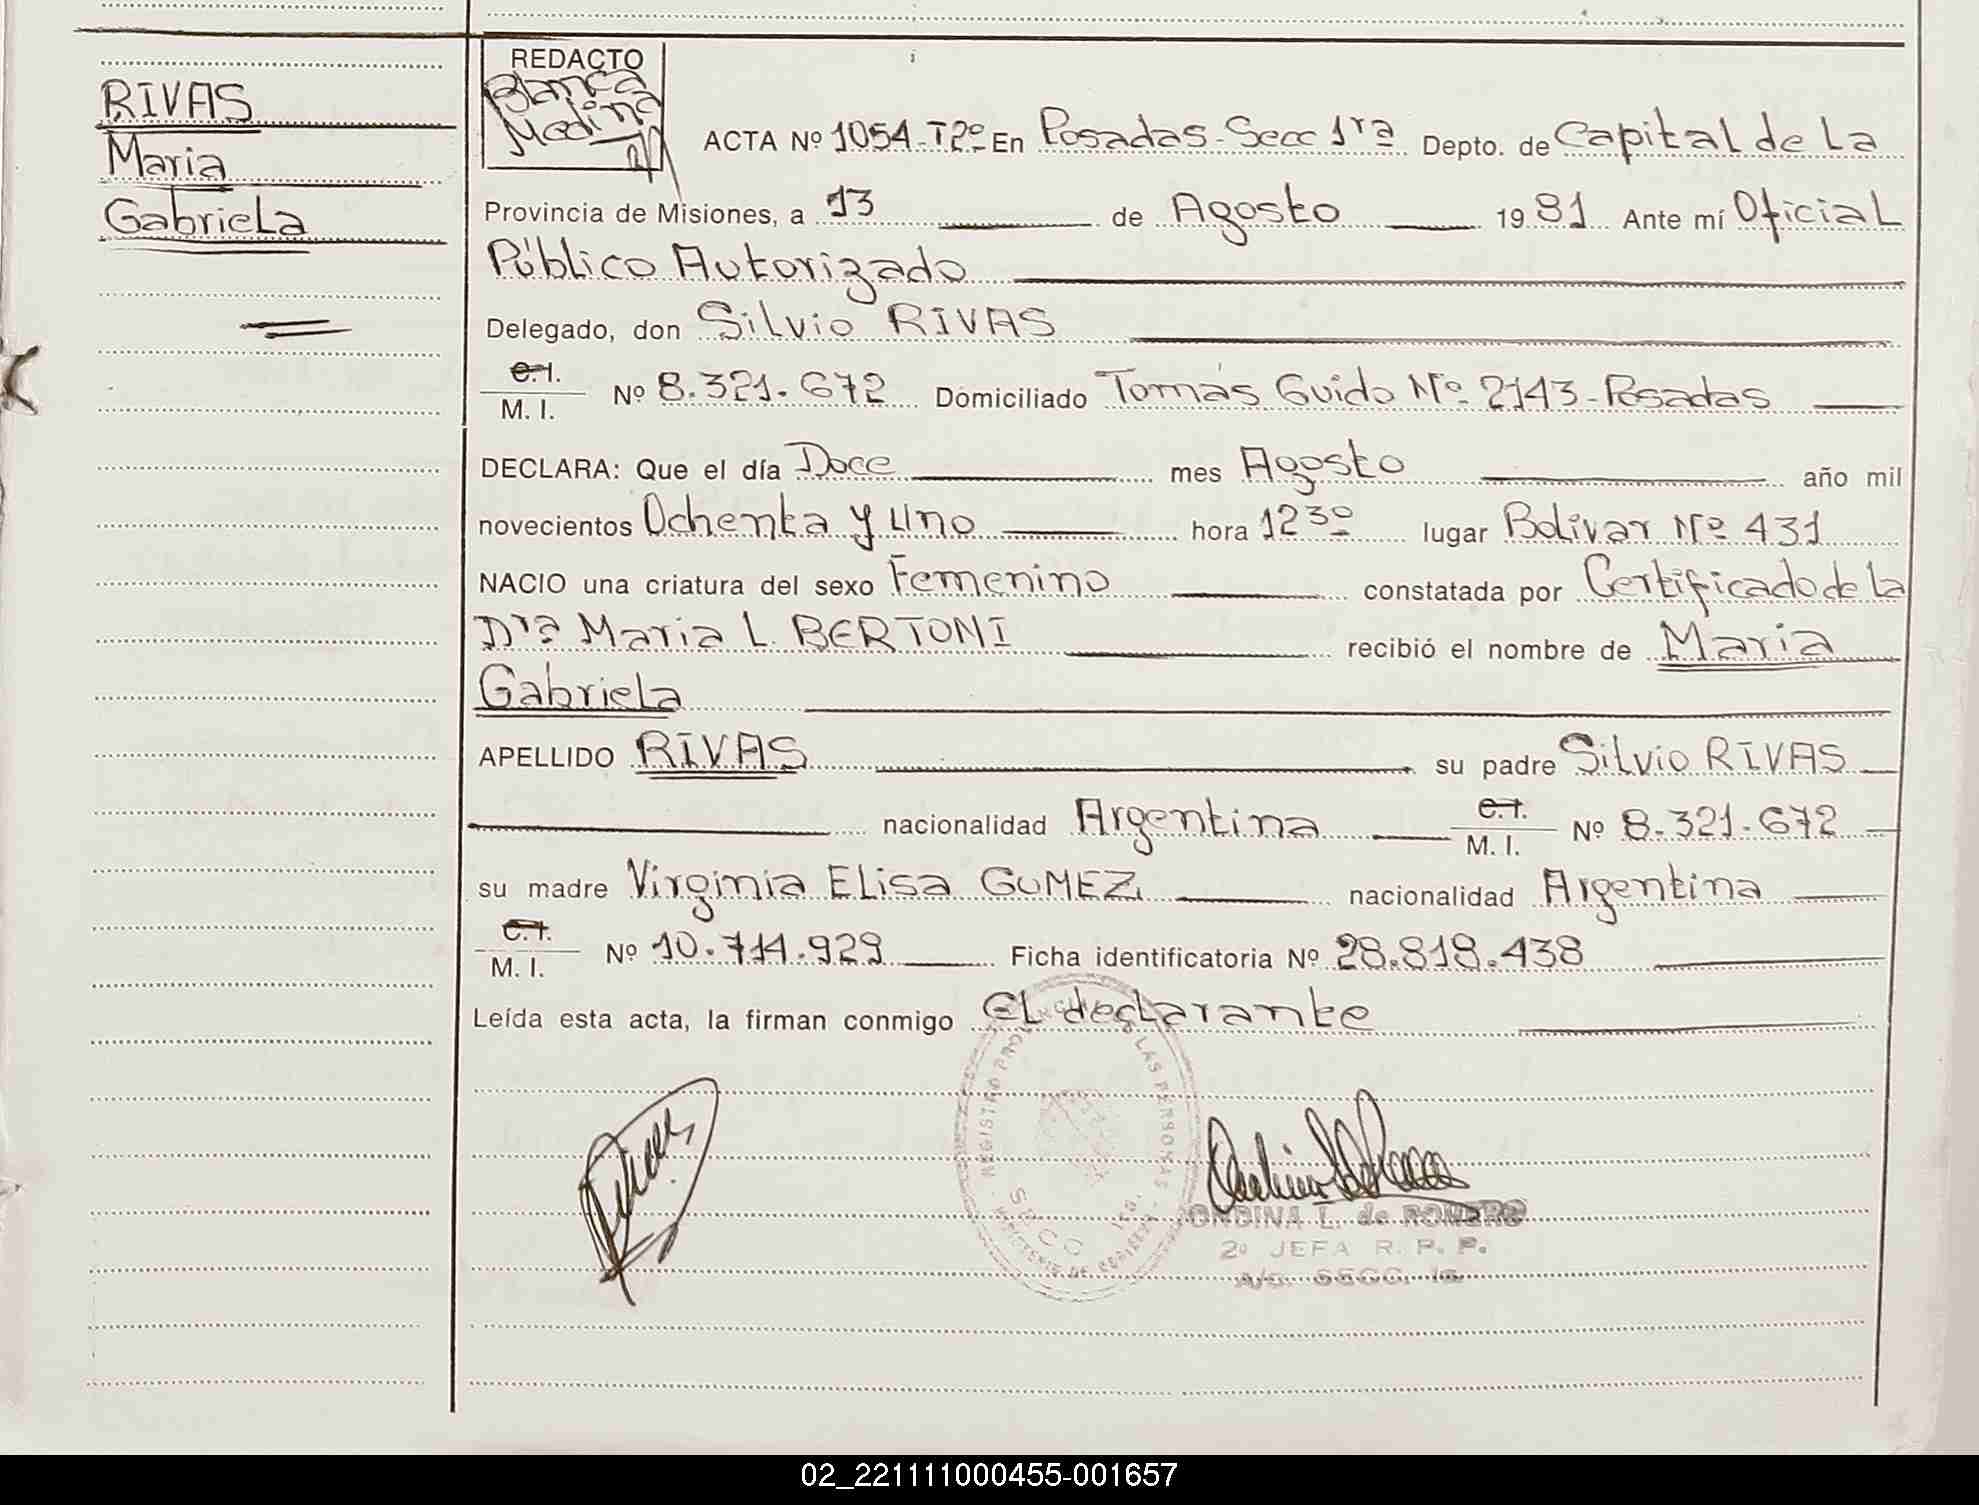 RIVAS
Maria
Gabriela
REDACTO
Blanca
Medina
ACTA Nº 1054-Tº2º En Posadas-Secc 1ra Depto. de Capital de La
Provincia de Misiones, a 13 de Agosto 1981 Ante mí Oficial
Público Autorizado
Delegado, don Silvio RIVAS
C.I.
M. I. Nº 8.321.672 Domiciliado Tomás Guido Nº 2143-Posadas
DECLARA: Que el día Doce mes Agosto año mil
novecientos Ochenta y Uno hora 12 30 lugar Bolivar Nº 431
NACIO una criatura del sexo Femenino constatada por Certificado de la
Dra Maria L. BERTONI recibió el nombre de Maria
Gabriela
APELLIDO RIVAS su padre Silvio RIVAS
nacionalidad Argentina C.I.
M. I. Nº 8.321.672
su madre Virginia Elisa GOMEZ nacionalidad Argentina
C.I.
M. I. Nº 10.714.929 Ficha identificatoria Nº 28.818.438
Leída esta acta, la firman conmigo El declarante
REGISTRO LAS PERSONAS
SECC 1ra.
MINISTERIO DE GOBIERNO
ONDINA L. de ROMERO
2º JEFA R. P. P.
A/C. SECC. 1a
02_221111000455-001657